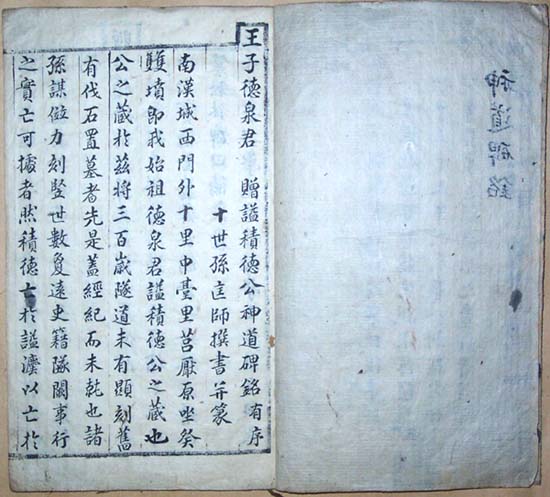 神道碑銘
王子德泉君 贈謚積德公神道碑銘 有序
十世孫匡師撰書并篆
南漢城西門外十里中臺里莒厰原坐癸
雙墳即我始祖德泉君謚積德公之藏也
公之藏於茲將三百歲隧道未有顯刻舊
有伐石置墓者先是蓋經紀而未也諸
孫謀僦力刻竪世數夐遠史籍隊闕事行
之實亡可據者然積德於謚灋以亡於